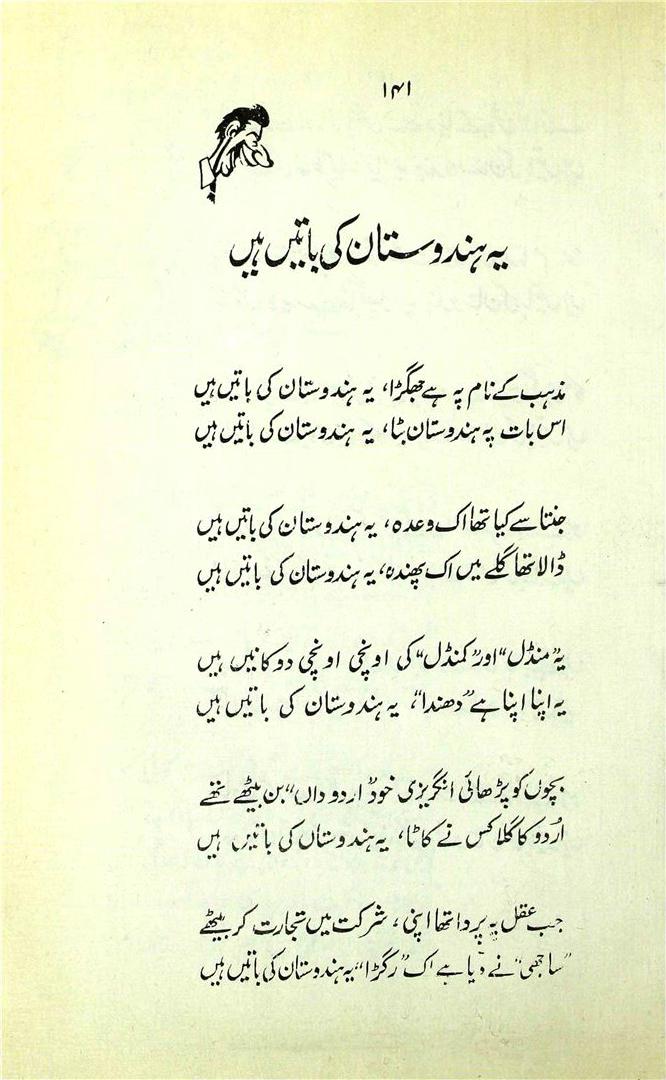 ۱۴۱
یہ ہندوستان کی باتیں ہیں
مذہب کے نام پہ ہے جھگڑا، یہ ہندوستان کی باتیں ہیں
اس بات پہ ہندوستان بٹا، یہ ہندوستان کی باتیں ہیں
جنتا سے کیا تھا اک وعدہ، یہ ہندوستان کی باتیں ہیں
ڈالا تھا گلے میں اک پھندہ، یہ ہندوستان کی باتیں ہیں
یہ "منڈل" اور "کمنڈل" کی اونچی اونچی دوکانیں ہیں
یہ اپنا اپنا ہے "دھندا"، یہ ہندوستان کی باتیں ہیں
بچوں کو پڑھائی انگریزی خود "اردو داں" بن بیٹھے تھے
اُردو کا گلا کس نے کاٹا، یہ ہندوستاں کی باتیں ہیں
جب عقل پہ پردا تھا اپنی، شرکت میں تجارت کر بیٹھے
"ساجھی" نے دیا ہے اک "رگڑا" یہ ہندوستان کی باتیں ہیں